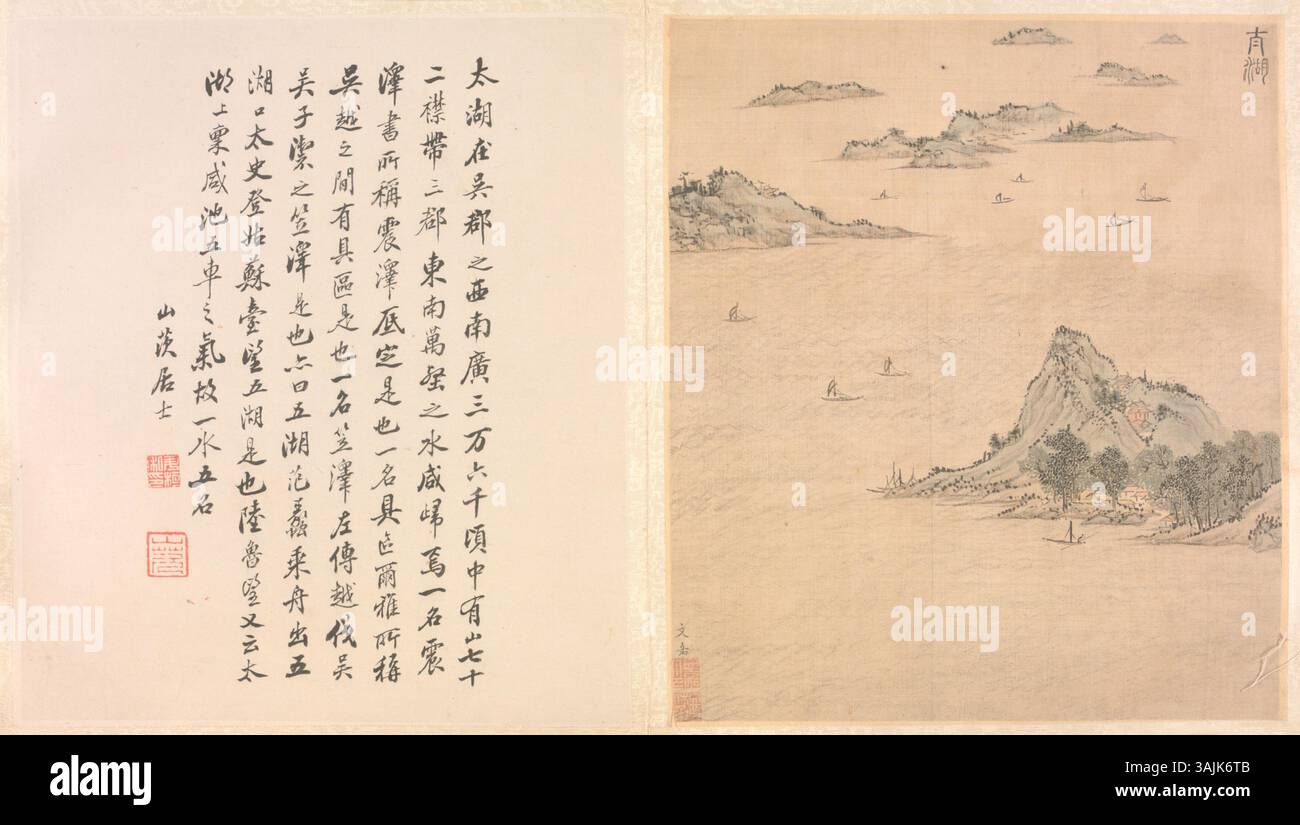 太湖
文嘉
太湖在吳郡之西南廣三万六千頃中有山七十
二襟帶三郡東南萬壑之水咸歸焉一名震
澤書所稱震澤底定是也一名具區爾雅所稱
吳越之間有具區是也一名笠澤左傳越伐吳
吳子禦之笠澤是也亦曰五湖范蠡乘舟出五
湖口太史登姑蘇臺望五湖是也陸魯望又云太
湖上稟咸池五車之氣故一水五名
山茨居士
alamy
Image ID: 3AJK6TB
www.alamy.com